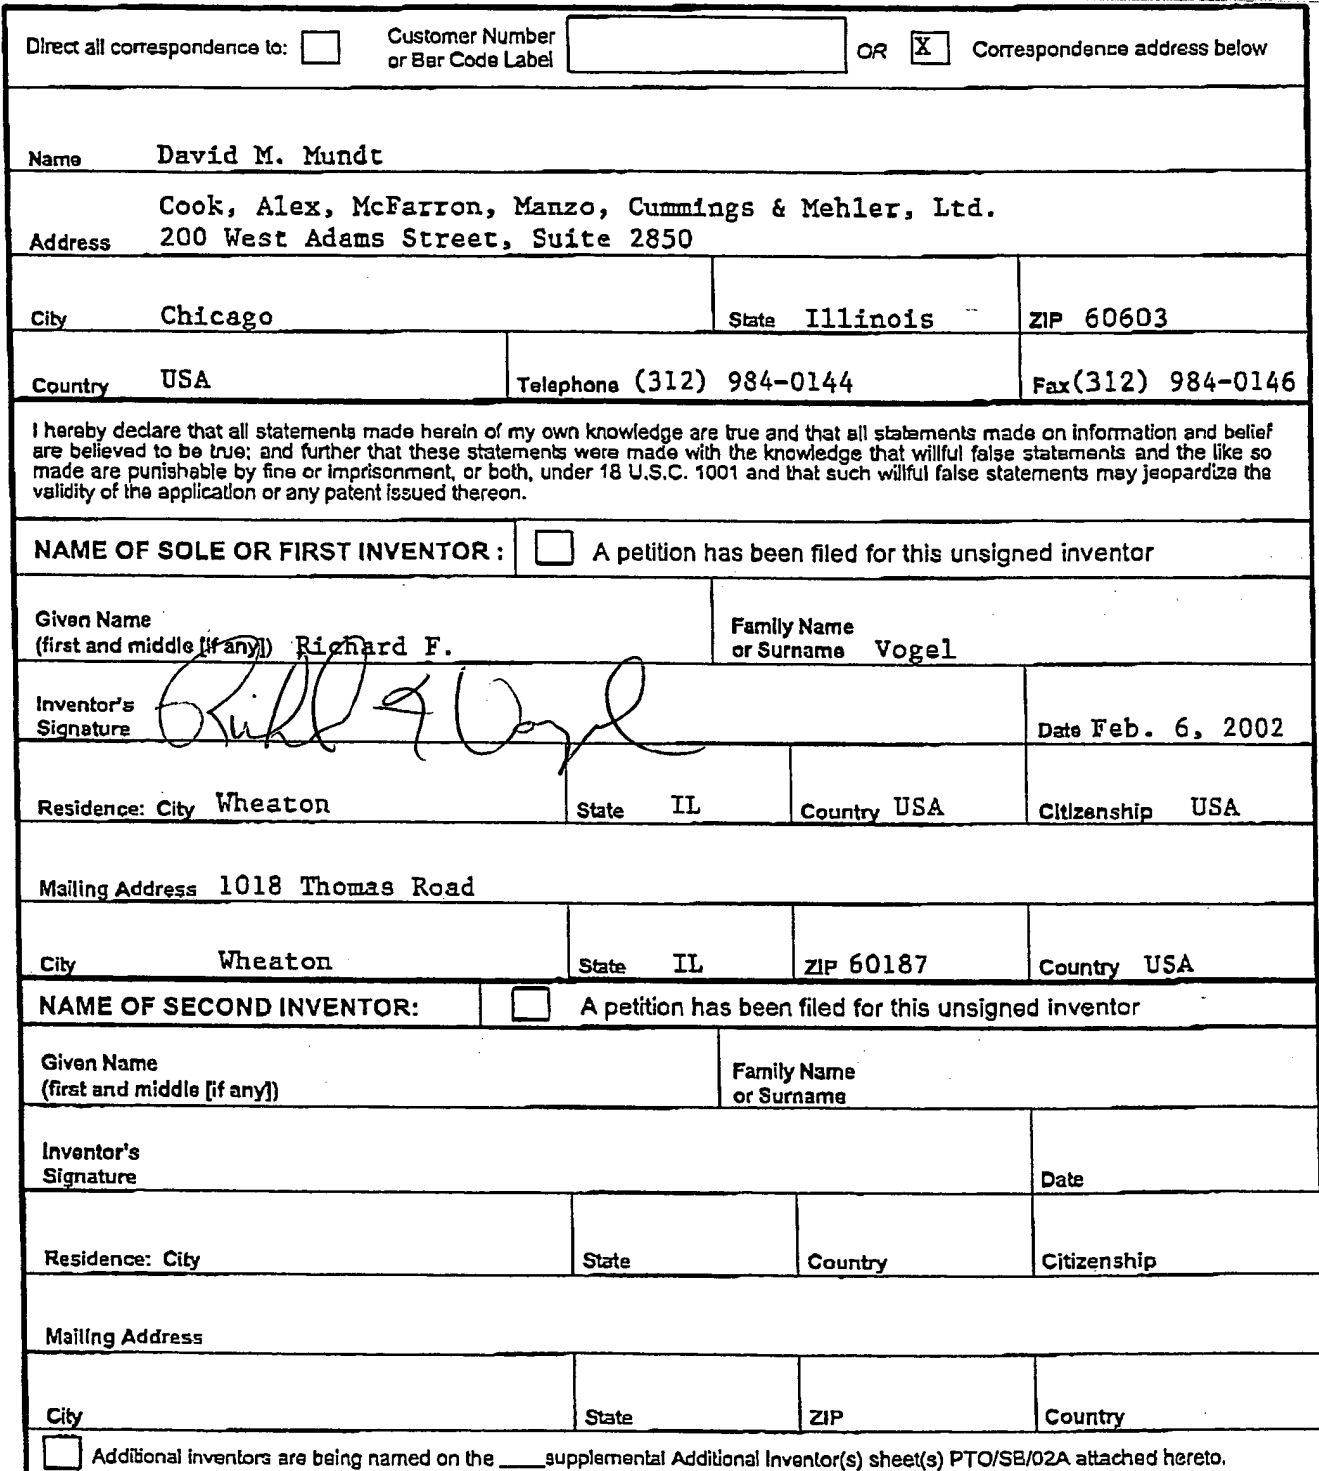 Direct all correspondence to: Customer Number or Bar Code Label OR X Correspondence address below
Name David M. Mundt
Cook, Alex, McFarron, Manzo, Cummings & Mehler, Ltd.
Address 200 West Adams Street, Suite 2850
City Chicago State Illinois ZIP 60603
Country USA Telephone (312) 984-0144 Fax (312) 984-0146
I hereby declare that all statements made herein of my own knowledge are true and that all statements made on information and belief
are believed to be true; and further that these statements were made with the knowledge that willful false statements and the like so
made are punishable by fine or imprisonment, or both, under 18 U.S.C. 1001 and that such willful false statements may jeopardize the
validity of the application or any patent issued thereon.
NAME OF SOLE OR FIRST INVENTOR : A petition has been filed for this unsigned inventor
Given Name
(first and middle [if any]) Richard F.
Family Name
or Surname Vogel
Inventor's
Signature Richard F Vogel
Date Feb. 6, 2002
Residence: City Wheaton State IL Country USA Citizenship USA
Mailing Address 1018 Thomas Road
City Wheaton State IL ZIP 60187 Country USA
NAME OF SECOND INVENTOR: A petition has been filed for this unsigned inventor
Given Name
(first and middle [if any])
Family Name
or Surname
Inventor's
Signature
Date
Residence: City State Country Citizenship
Mailing Address
City State ZIP Country
Additional inventors are being named on the ____supplemental Additional Inventor(s) sheet(s) PTO/SB/02A attached hereto.